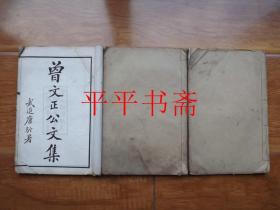 曾文正公文集
武進唐駝署
平平书斋